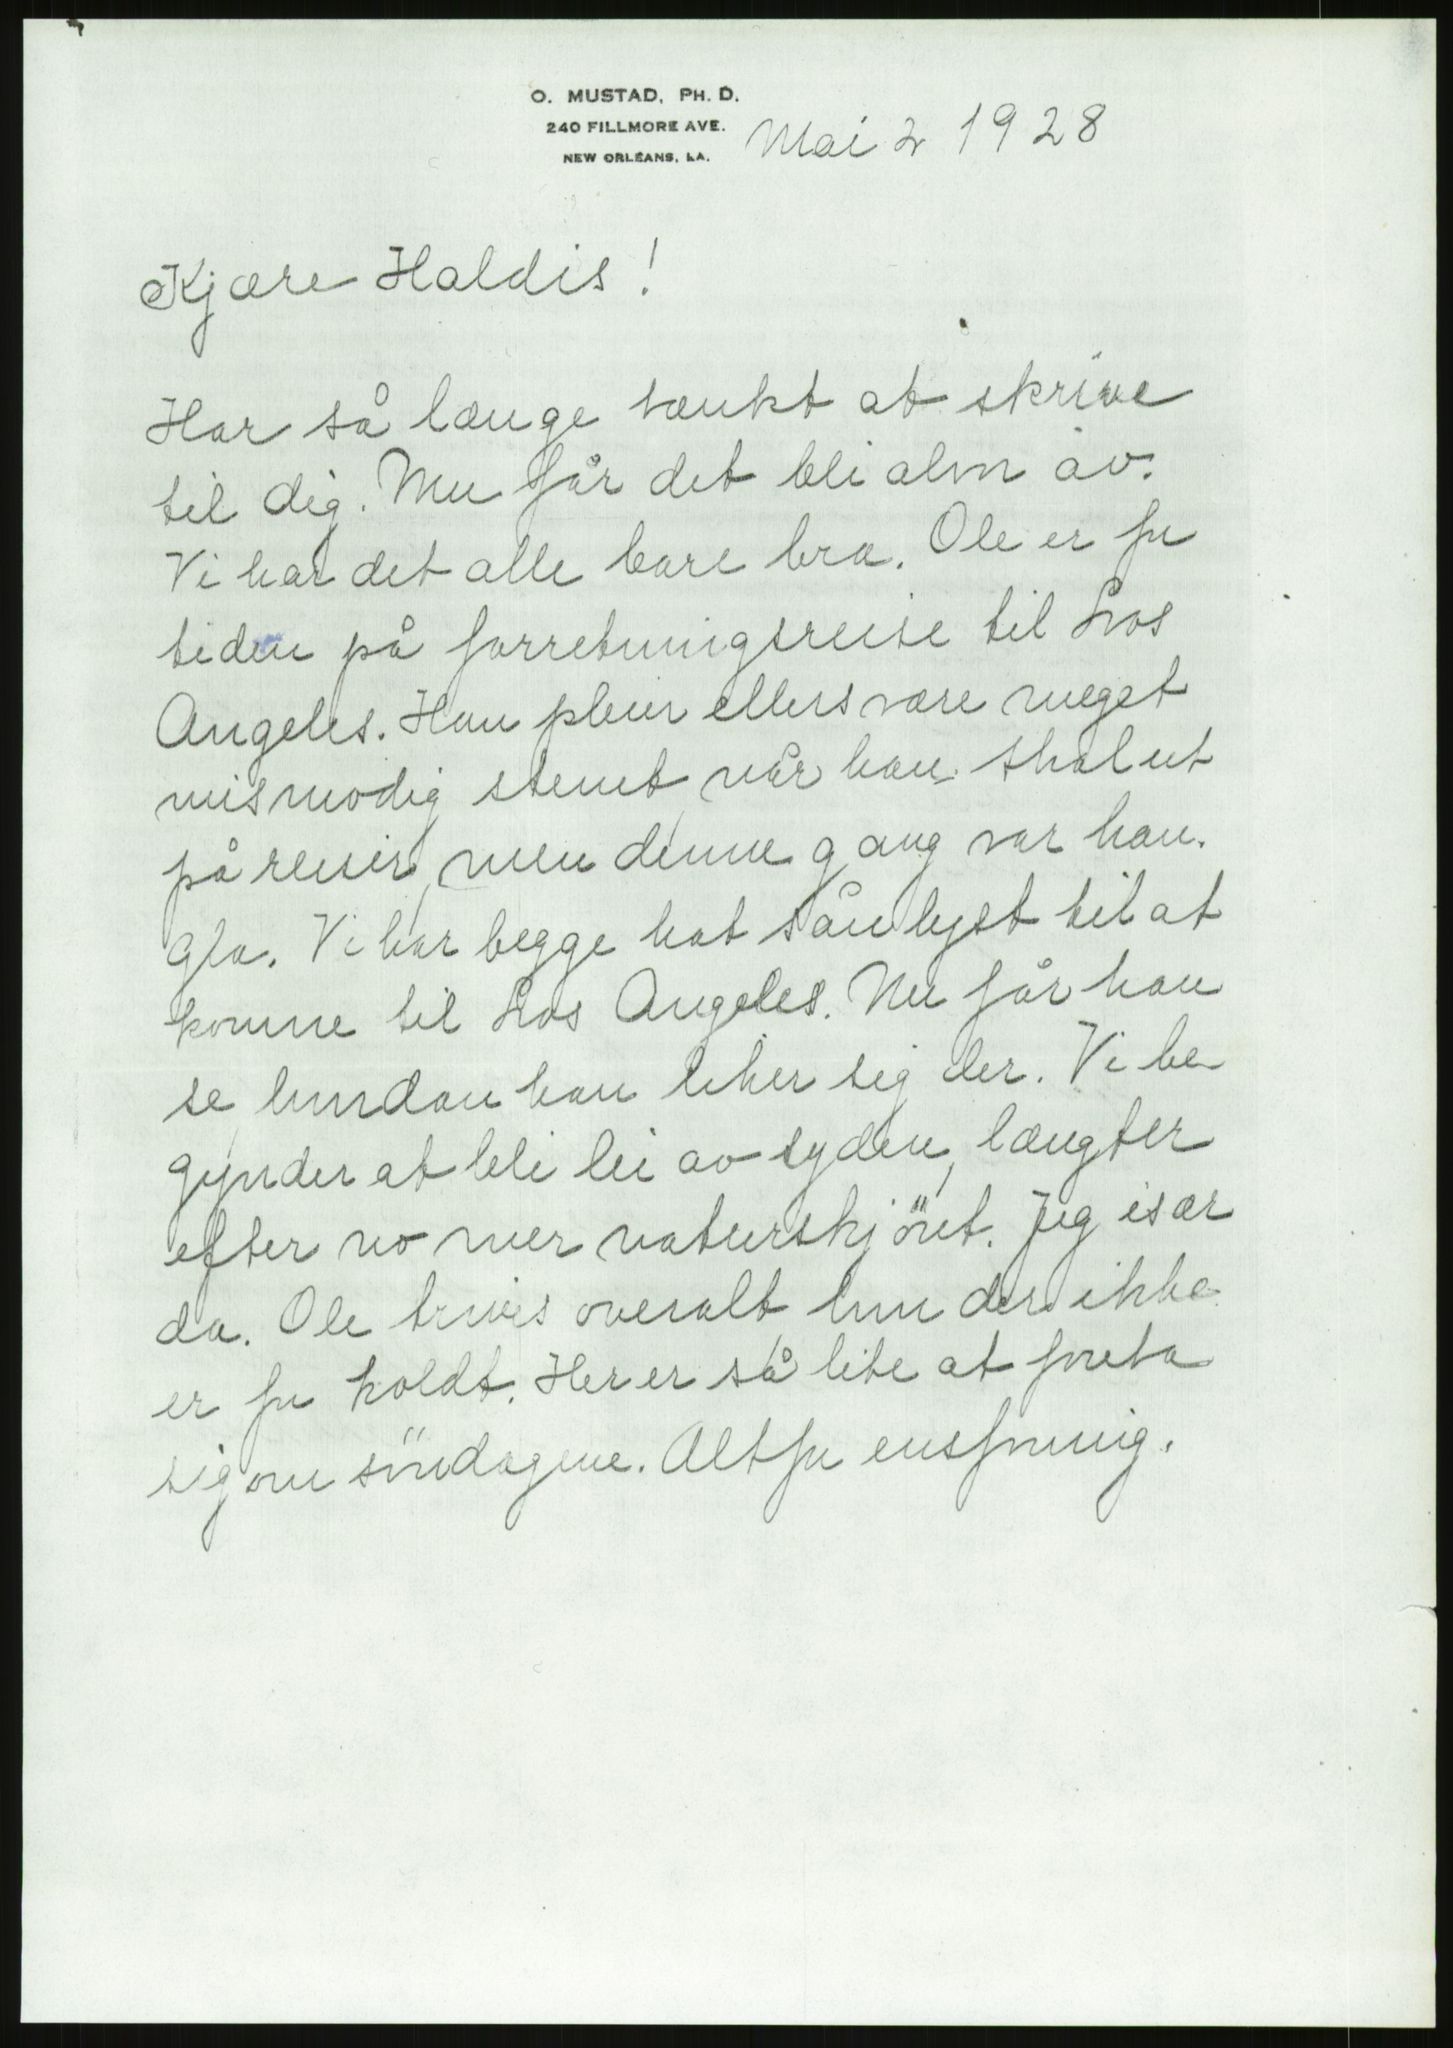 O. MUSTAD, PH. D.
240 FILLMORE AVE.
NEW ORLEANS, LA.
Mai 2 1928
Kjære Haldis!
Har så længe tænkt at skrive
til dig. Nu får det bli alvor av.
Vi har det alle bare bra. Ole er for
tiden på forretningsreise til Los
Angeles. Han pleier ellers være meget
mismodig stemt, når han skal ut
på reiser, men denne gang var han
gla. Vi har begge hat sån lyst til at
komme til Los Angeles. Nu får han
se hvordan han liker sig der. Vi be-
gynder at bli lei av syden, længter
efter no mer naturskjönt. Jeg især
da. Ole trives overalt hvor der ikke
er for koldt. Her er så lite at foreta
sig om söndagene. Altfor ensformig.